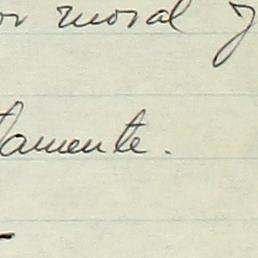 or moral y
tamente.